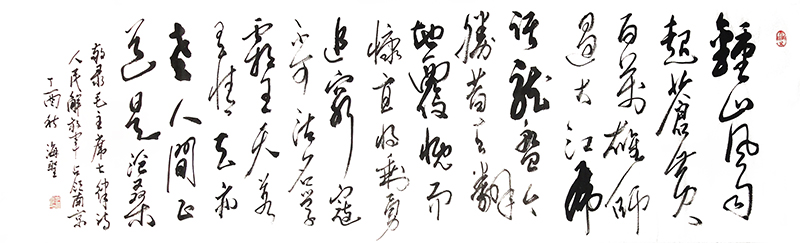 鍾山风雨
起蒼黄
百万雄师
過大江虎
踞龙盘今
勝昔天翻
地覆慨而
慷宜将剩勇
追窮寇
不可沽名学
霸王天若
有情天亦
老人间正
道是沧桑
敬录毛主席七律诗
人民解放军占领南京
丁酉秋 海